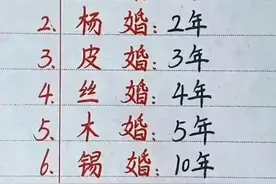 2. 杨婚:2年
3. 皮婚:3年
4. 丝婚:4年
5. 木婚:5年
6. 锡婚:10年